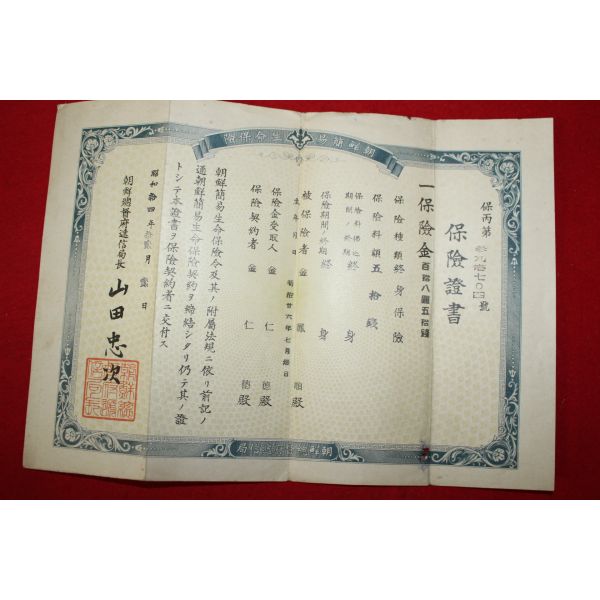 朝鮮簡易生命保險
保險證書
保丙第 號
一保險金百拾八圓五拾錢
保險種類終身保險
保險料額五拾錢
保險料拂込期間ノ終期終身
保險期間ノ終期終身
被保險者金 鳳 殿
生年月日 廿六年七月 日
保險金受取人金仁德殿
保險契約者金仁德殿
朝鮮簡易生命保險令及其ノ附屬法規ニ依リ前記ノ
通朝鮮簡易生命保險契約ヲ締結シタリ仍テ其ノ證
トシテ本證書ヲ保險契約者ニ交付ス
昭和拾四年拾貳月壹日
朝鮮總督府遞信局長 山田忠次
朝鮮總督府遞信局